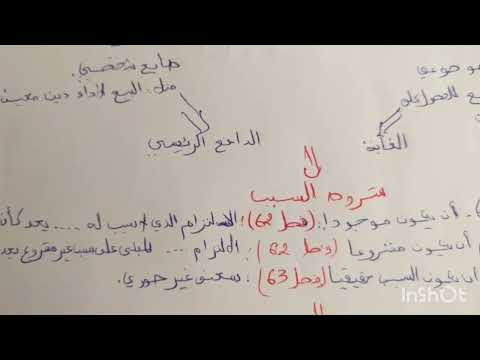 طابع شخصي.
مثل: البيع لأداء دين معين
موضوعي
الغاية
الدافع الرئيسي
شروط السبب
أن يكون موجودا: (فصل 62): الالتزام الذي لا سبب له .... يعد كأن
أن يكون مشروعا (فصل 62): الالتزام ... المبني على سبب غير مشروع يعد
أن يكون السبب حقيقيا (فصل 63): بمعنى غير صوري.
InShOt